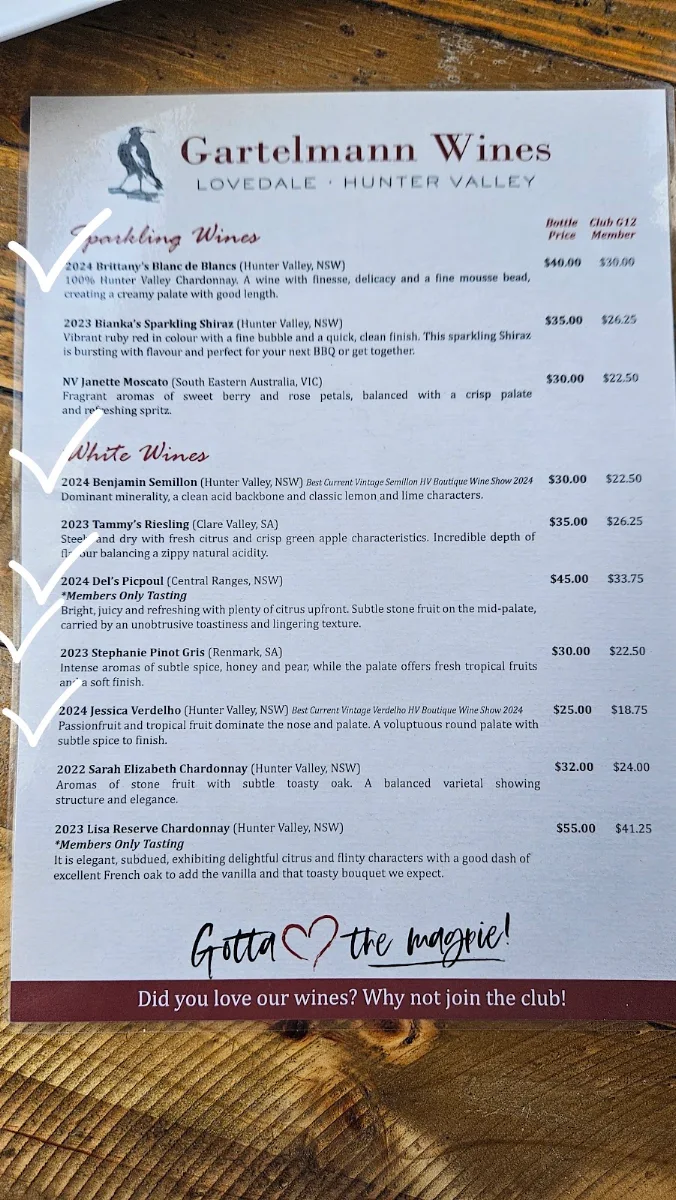 Gartelmann Wines
LOVEDALE · HUNTER VALLEY
Sparkling Wines
Bottle Price Club G12 Member
2024 Brittany's Blanc de Blancs (Hunter Valley, NSW) $40.00 $30.00
100% Hunter Valley Chardonnay. A wine with finesse, delicacy and a fine mousse bead,
creating a creamy palate with good length.
2023 Bianka's Sparkling Shiraz (Hunter Valley, NSW) $35.00 $26.25
Vibrant ruby red in colour with a fine bubble and a quick, clean finish. This sparkling Shiraz
is bursting with flavour and perfect for your next BBQ or get together.
NV Janette Moscato (South Eastern Australia, VIC) $30.00 $22.50
Fragrant aromas of sweet berry and rose petals, balanced with a crisp palate
and refreshing spritz.
White Wines
2024 Benjamin Semillon (Hunter Valley, NSW) Best Current Vintage Semillon HV Boutique Wine Show 2024 $30.00 $22.50
Dominant minerality, a clean acid backbone and classic lemon and lime characters.
2023 Tammy's Riesling (Clare Valley, SA) $35.00 $26.25
Steely and dry with fresh citrus and crisp green apple characteristics. Incredible depth of
flavour balancing a zippy natural acidity.
2024 Del's Picpoul (Central Ranges, NSW) $45.00 $33.75
*Members Only Tasting
Bright, juicy and refreshing with plenty of citrus upfront. Subtle stone fruit on the mid-palate,
carried by an unobtrusive toastiness and lingering texture.
2023 Stephanie Pinot Gris (Renmark, SA) $30.00 $22.50
Intense aromas of subtle spice, honey and pear, while the palate offers fresh tropical fruits
and a soft finish.
2024 Jessica Verdelho (Hunter Valley, NSW) Best Current Vintage Verdelho HV Boutique Wine Show 2024 $25.00 $18.75
Passionfruit and tropical fruit dominate the nose and palate. A voluptuous round palate with
subtle spice to finish.
2022 Sarah Elizabeth Chardonnay (Hunter Valley, NSW) $32.00 $24.00
Aromas of stone fruit with subtle toasty oak. A balanced varietal showing
structure and elegance.
2023 Lisa Reserve Chardonnay (Hunter Valley, NSW) $55.00 $41.25
*Members Only Tasting
It is elegant, subdued, exhibiting delightful citrus and flinty characters with a good dash of
excellent French oak to add the vanilla and that toasty bouquet we expect.
Gotta ♡ the magpie!
Did you love our wines? Why not join the club!